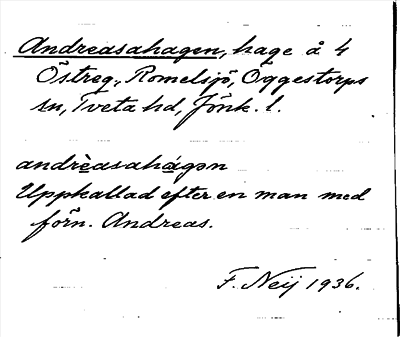 Andreasahagen, hage å 4
Östreg., Romelsjö, Oggestorps
sn, Tveta hd, Jönk. l.
andrèasahágən
Uppkallad efter en man med
förn. Andreas.
F. Neij 1936.